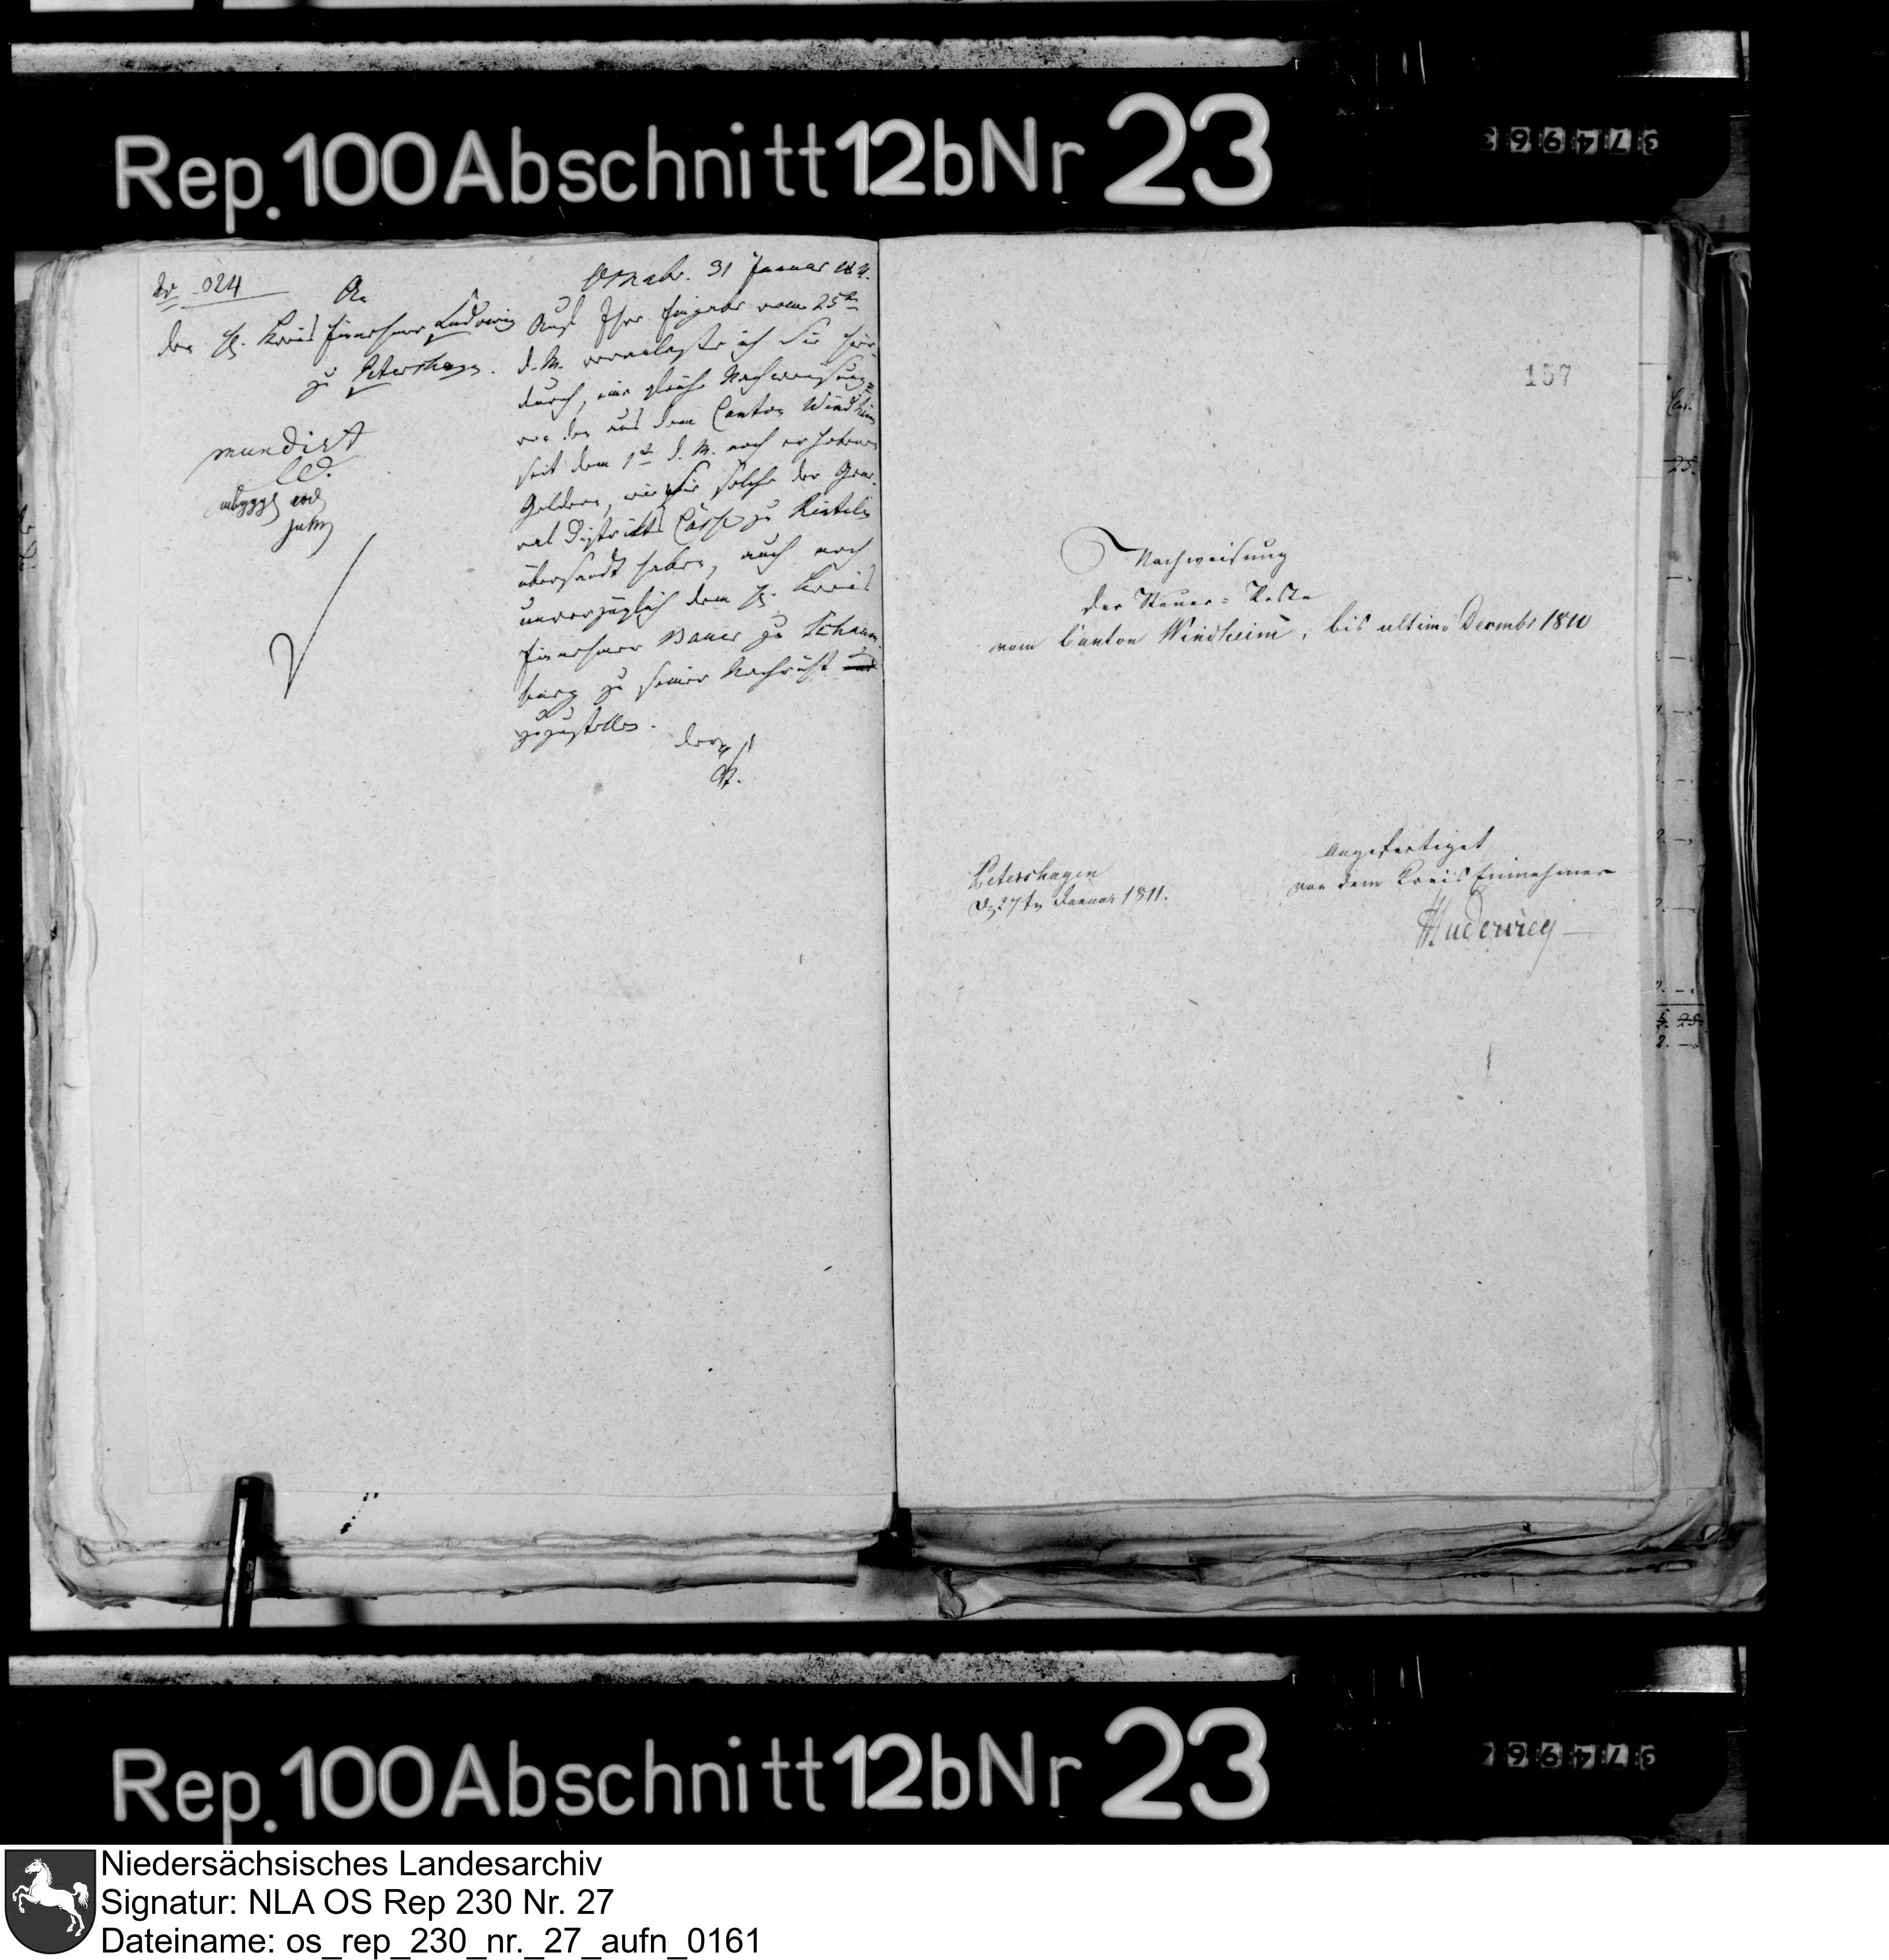 Rep. 100 Abschnitt 12b Nr 23
024
An
den H. Kreis Einnehmer Ludowig
zu Petershagen.
mundirt
Osnabr. 31 Januar 1811.
Auf Ihre Eingabe vom 25ten
d. M. veranlaße ich Sie hier-
durch, eine gleiche Nachweisung
von den aus dem Canton Windheim
seit dem 1ten d. M. noch erhobenen
Geldern, wie Sie solche der Gene-
ral Districts Casse zu Rinteln
übersandt haben, auch noch
unverzüglich dem H. Kreis
Einnehmer Bauer zu Schaum-
burg zu seiner Nachricht
zuzustellen.
157
Nachweisung
der Steuer-Reste
vom Canton Windheim, bis ultimo Decembr 1810
Petershagen
d 27ten Januar 1811.
Angefertiget
von dem Kreis Einnehmer
Rep. 100 Abschnitt 12b Nr 23
Niedersächsisches Landesarchiv
Signatur: NLA OS Rep 230 Nr. 27
Dateiname: os_rep_230_nr._27_aufn_0161